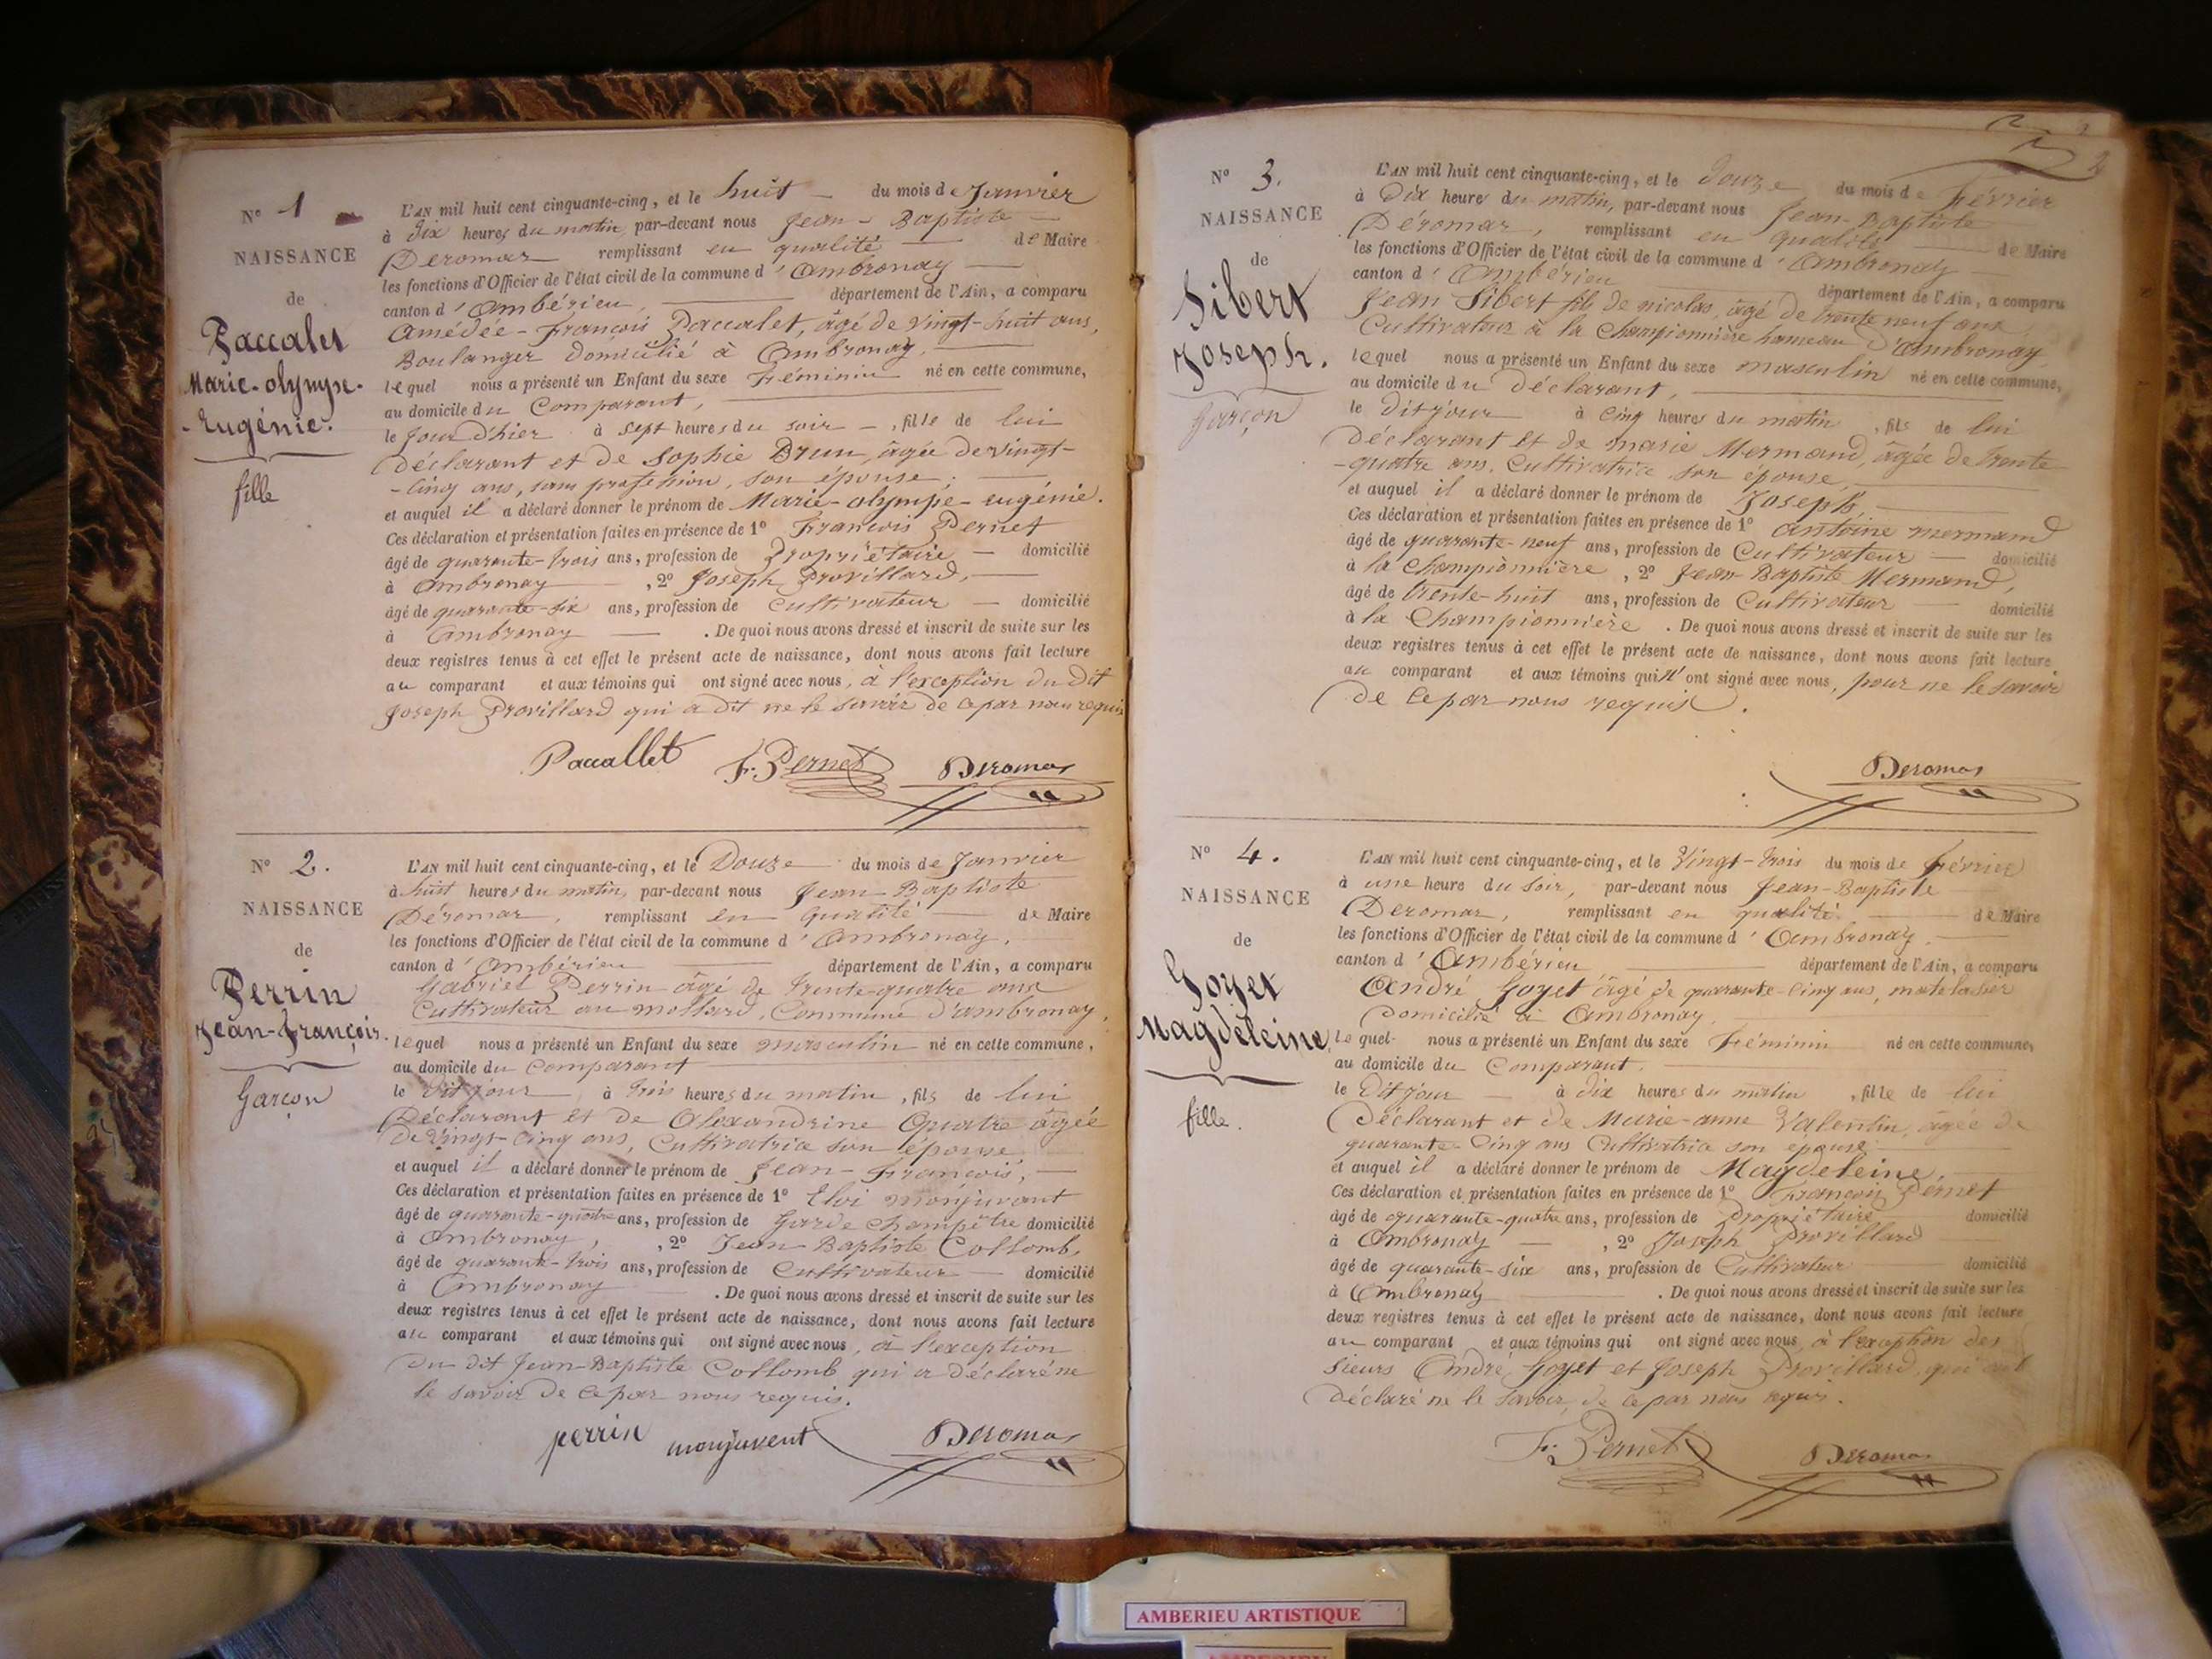 N° 1
NAISSANCE
de
Paccalet
Marie-olympe-
-Eugénie.
fille
L'AN mil huit cent cinquante-cinq, et le huit du mois de Janvier
à dix heures du matin, par-devant nous Jean-Baptiste
Deromas remplissant en qualité de Maire
les fonctions d'Officier de l'état civil de la commune d'Ambronay
canton d'Ambérieu, département de l'Ain, a comparu
Amédée-François Paccalet, âgé de vingt-huit ans,
Boulanger domicilié à Ambronay,
lequel nous a présenté un Enfant du sexe Féminin né en cette commune,
au domicile du Comparant,
le Jour d'hier à sept heures du soir, fille de lui
Déclarant et de Sophie Brun, âgée de vingt-
-cinq ans, sans profession, son épouse;
et auquel il a déclaré donner le prénom de Marie-olympe-eugénie.
Ces déclaration et présentation faites en présence de 1° François Pernet
âgé de quarante-trois ans, profession de Propriétaire domicilié
à Ambronay, 2° Joseph Provillard,
âgé de quarante-six ans, profession de Cultivateur domicilié
à Ambronay. De quoi nous avons dressé et inscrit de suite sur les
deux registres tenus à cet effet le présent acte de naissance, dont nous avons fait lecture
au comparant et aux témoins qui ont signé avec nous, à l'exception du dit
Joseph Provillard qui a dit ne le savoir de ce par nous requis
Paccallet F. Pernet Deromas
N° 2.
NAISSANCE
de
Perrin
Jean-François.
Garçon
L'AN mil huit cent cinquante-cinq, et le Douze du mois de Janvier
à huit heures du matin, par-devant nous Jean-Baptiste
Déromas, remplissant en qualité de Maire
les fonctions d'Officier de l'état civil de la commune d'Ambronay,
canton d'Ambérieu département de l'Ain, a comparu
Gabriel Perrin âgé de trente-quatre ans
Cultivateur au mollard, Commune d'ambronay,
lequel nous a présenté un Enfant du sexe masculin né en cette commune,
au domicile du Comparant
le dit jour à trois heures du matin, fils de lui
Déclarant et de Alexandrine Quatre âgée
de vingt-cinq ans, Cultivatrice son épouse
et auquel il a déclaré donner le prénom de Jean-François,
Ces déclaration et présentation faites en présence de 1° Eloi monjuvant
âgé de quarante-quatre ans, profession de Garde champêtre domicilié
à Ambronay, 2° Jean-Baptiste Collomb,
âgé de quarante-trois ans, profession de Cultivateur domicilié
à Ambronay. De quoi nous avons dressé et inscrit de suite sur les
deux registres tenus à cet effet le présent acte de naissance, dont nous avons fait lecture
au comparant et aux témoins qui ont signé avec nous, à l'exception
du dit Jean-Baptiste Collomb qui a déclaré ne
le savoir de ce par nous requis.
perrin monjuvent Deromas
2
N° 3.
NAISSANCE
de
Sibert
Joseph.
Garçon
L'AN mil huit cent cinquante-cinq, et le douze du mois de Février
à Dix heures du matin, par-devant nous Jean-Baptiste
Déromas, remplissant en qualité de Maire
les fonctions d'Officier de l'état civil de la commune d'Ambronay
canton d'Ambérieu département de l'Ain, a comparu
Jean Sibert fils de nicolas, âgé de trente neuf ans,
Cultivateur à la Championnière hameau d'Ambronay
lequel nous a présenté un Enfant du sexe masculin né en cette commune,
au domicile du déclarant,
le dit jour à cinq heures du matin, fils de lui
Déclarant et de marie Mermand, âgée de trente
-quatre ans, Cultivatrice son épouse,
et auquel il a déclaré donner le prénom de Joseph,
Ces déclaration et présentation faites en présence de 1° Antoine mermand
âgé de quarante-neuf ans, profession de Cultivateur domicilié
à la Championnière, 2° Jean-Baptiste Mermand,
âgé de trente-huit ans, profession de Cultivateur domicilié
à la Championnière. De quoi nous avons dressé et inscrit de suite sur les
deux registres tenus à cet effet le présent acte de naissance, dont nous avons fait lecture
au comparant et aux témoins qui n'ont signé avec nous, pour ne le savoir
de ce par nous requis.
Deromas
N° 4.
NAISSANCE
de
Goyet
Magdeleine
fille.
L'AN mil huit cent cinquante-cinq, et le Vingt-trois du mois de Février
à une heure du soir, par-devant nous Jean-Baptiste
Deromas, remplissant en qualité de Maire
les fonctions d'Officier de l'état civil de la commune d'Ambronay,
canton d'Ambérieu département de l'Ain, a comparu
André Goyet âgé de quarante-cinq ans, matelassier
Domicilié à Ambronay,
lequel nous a présenté un Enfant du sexe Féminin né en cette commune,
au domicile du Comparant,
le dit jour à dix heures du matin, fille de lui
Déclarant et de Marie-anne Valentin, âgée de
quarante-cinq ans Cultivatrice son épouse
et auquel il a déclaré donner le prénom de Magdeleine,
Ces déclaration et présentation faites en présence de 1° François Pernet
âgé de quarante-quatre ans, profession de Propriétaire domicilié
à Ambronay, 2° Joseph Provillard
âgé de quarante-six ans, profession de Cultivateur domicilié
à Ambronay. De quoi nous avons dressé et inscrit de suite sur les
deux registres tenus à cet effet le présent acte de naissance, dont nous avons fait lecture
au comparant et aux témoins qui ont signé avec nous, à l'exception des
sieurs André Goyet et Joseph Provillard, qui ont
déclaré ne le savoir, de ce par nous requis.
F. Pernet Deromas
AMBERIEU ARTISTIQUE
AMBERIEU